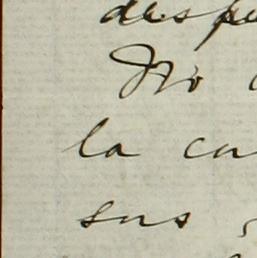 despu
No
la cu
sus